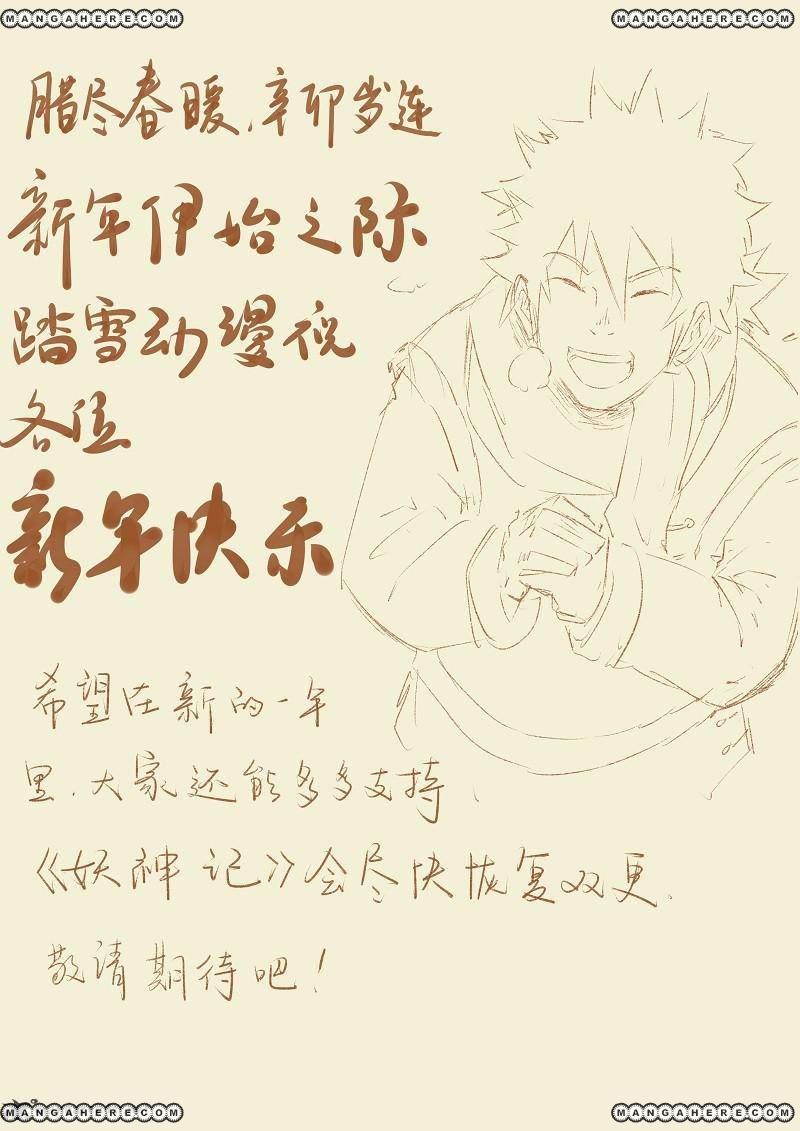 MANGAHERE.COM MANGAHERE.COM
腊尽春暖,辛卯岁连
新年伊始之际
踏雪动漫祝
各位
新年快乐
希望在新的一年
里.大家还能多多支持
《妖神记》会尽快恢复双更.
敬请期待吧!
MANGAHERE.COM MANGAHERE.COM